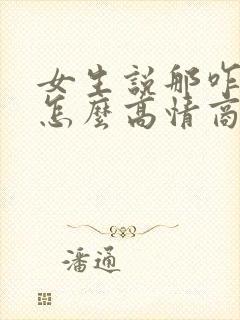 女生說那咋
怎麼高情商
潘通